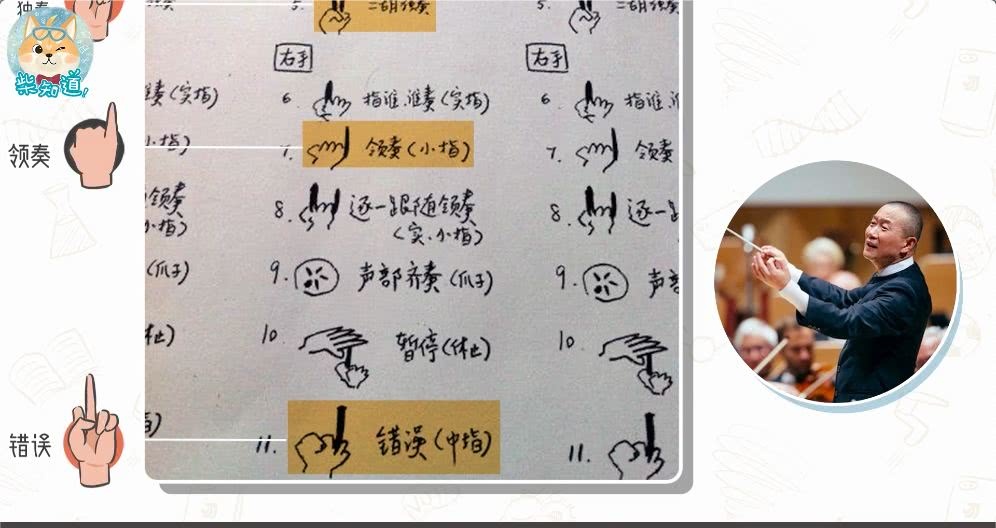 独奏
柴知道
领奏
错误
5. 二胡独奏
右手
6. 指谁.谁奏(实指)
7. 领奏(小指)
8. 逐一跟随领奏
(实.小指)
9. 声部齐奏(爪子)
10 暂停(休止)
11. 错误(中指)
谁奏(实指)
小指)
领奏
小指)
(爪子)
休止)
指)
5. 二胡独奏
右手
6. 指谁.谁
7. 领奏
8. 逐一跟
9. 声部
10
11.